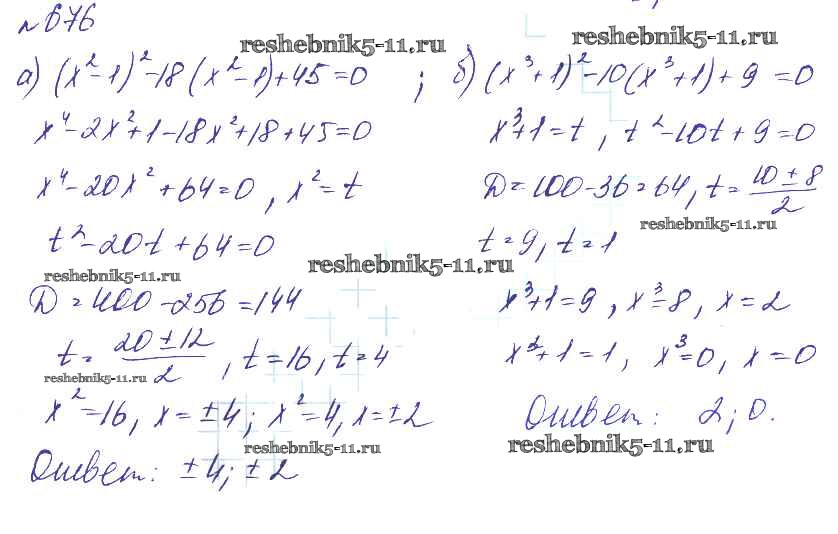 №676
reshebnik5-11.ru reshebnik5-11.ru
а) (x²-1)²-18(x²-1)+45=0 ; б) (x³+1)²-10(x³+1)+9=0
x⁴-2x²+1-18x²+18+45=0 x³+1=t, t²-10t+9=0
x⁴-20x²+64=0, x²=t D=100-36=64, t=(10±8)/2
reshebnik5-11.ru
t²-20t+64=0 t=9, t=1
reshebnik5-11.ru reshebnik5-11.ru
D=400-256=144 x³+1=9, x³=8, x=2
t=(20±12)/2, t=16, t=4 x³+1=1, x³=0, x=0
reshebnik5-11.ru
x²=16, x=±4; x²=4, x=±2 Ответ: 2; 0.
reshebnik5-11.ru reshebnik5-11.ru
Ответ: ±4; ±2